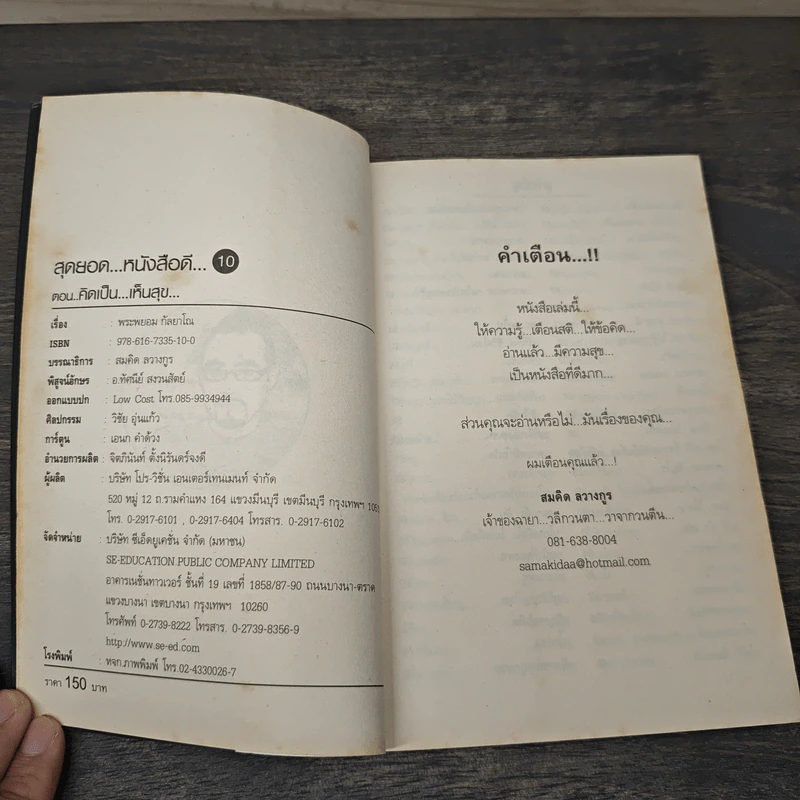 สุดยอด...หนังสือดี... 10
ตอน..คิดเป็น...เห็นสุข...
เรื่อง : พระพยอม กัลยาโณ
ISBN : 978-616-7335-10-0
บรรณาธิการ : สมคิด ลวางกูร
พิสูจน์อักษร : อ.ทัศนีย์ สงวนสัตย์
ออกแบบปก : Low Cost โทร.085-9934944
ศิลปกรรม : วิชัย อุ่นแก้ว
การ์ตูน : เอนก คำด้วง
อำนวยการผลิต : จิตภินันท์ ตั้งนิรันดร์จงดี
ผู้ผลิต : บริษัท โปร-วิชั่น เอนเตอร์เทนเมนท์ จำกัด
520 หมู่ 12 ถ.รามคำแหง 164 แขวงมีนบุรี เขตมีนบุรี กรุงเทพฯ
โทร. 0-2917-6101 , 0-2917-6404 โทรสาร. 0-2917-6102
จัดจำหน่าย : บริษัท ซีเอ็ดยูเคชั่น จำกัด (มหาชน)
SE-EDUCATION PUBLIC COMPANY LIMITED
อาคารเนชั่นทาวเวอร์ ชั้นที่ 19 เลขที่ 1858/87-90 ถนนบางนา-ตราด
แขวงบางนา เขตบางนา กรุงเทพฯ 10260
โทรศัพท์ 0-2739-8222 โทรสาร. 0-2739-8356-9
http://www.se-ed.com
โรงพิมพ์ : หจก.ภาพพิมพ์ โทร.02-4330026-7
ราคา 150 บาท
คำเตือน...!!
หนังสือเล่มนี้...
ให้ความรู้...เตือนสติ...ให้ข้อคิด...
อ่านแล้ว...มีความสุข...
เป็นหนังสือที่ดีมาก...
ส่วนคุณจะอ่านหรือไม่...มันเรื่องของคุณ...
ผมเตือนคุณแล้ว...!
สมคิด ลวางกูร
เจ้าของฉายา...วลีกวนตา...วาจากวนตีน...
081-638-8004
samakidaa@hotmail.com